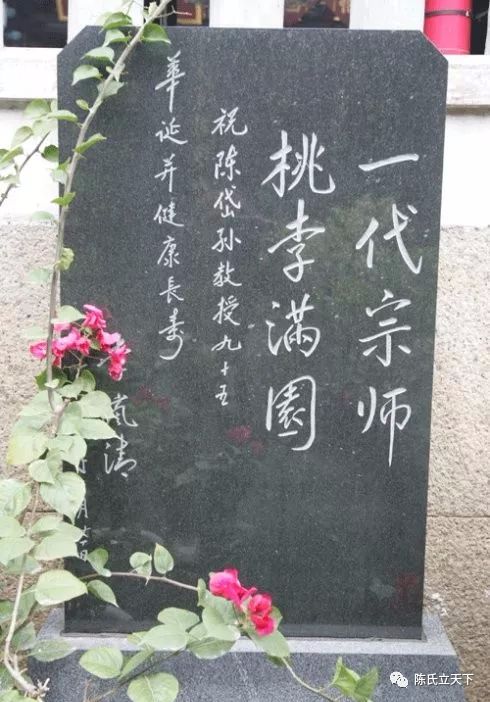 一代宗师
桃李满園
祝陈岱孙教授九十五
華诞并健康長寿
岚清
陈氏立天下